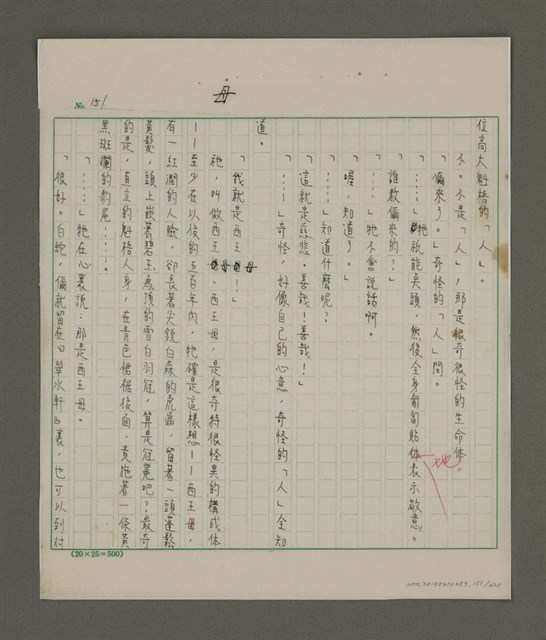 No. 151
母
位高大魁梧的「人」。
不。不是「人」，那是很奇很怪的生命体。
「偏來了。」奇怪的「人」問。
「……」牠祇能失頭，然後全身匍匐貼地表示敬意。
「誰教偏來的？」
「……」牠不會說話啊。
「喔，知道了。」
「……」知道什麼呢？
「這就是慈悲。善哉！善哉！」
「……」奇怪，好像自己的心意，奇怪的「人」全知
道。
「我就是西王母！」
祂，叫做西王母。西王母，是很奇特很怪異的構成体
——至少在以後的五百年內，牠確是這樣想——西王母，
有一紅潤的人臉，卻長著尖銳白森的虎齒，留著一頭蓬鬆
黃髮，頭上嵌著碧玉為頂的雪白羽冠，算是冠冕吧？最奇
的是，直立的魁梧人身，在青色裙裾後面，竟拖著一條黃
黑斑斕的豹尾……。
「……」牠在心裏說：那是西王母。
「很好。白蛇，偏就留在『翠水軒』裏，也可以到対
(20×25=500)